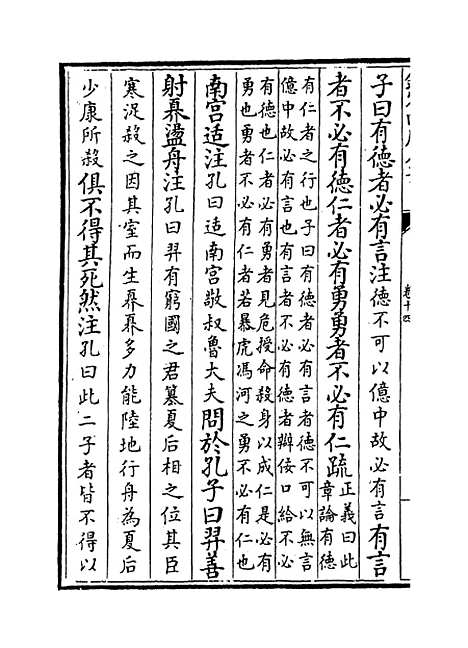 子曰有德者必有言注德不可以億中故必有言有言
者不必有德仁者必有勇勇者不必有仁疏
正義曰此
章論有德
有仁者之行也子曰有德者必有言者德不可以無言
億中故必有言也有言者不必有德者辯佞口給不必
有德也仁者必有勇者見危授命殺身以成仁是必有
勇也勇者不必有仁者若暴虎馮河之勇不必有仁也
南宫适注孔曰适南宫敬叔魯大夫問於孔子曰羿善
射奡盪舟注孔曰羿有窮國之君簒夏后相之位其臣
寒浞殺之因其室而生奡奡多力能陸地行舟為夏后
少康所殺俱不得其死然注孔曰此二子者皆不得以